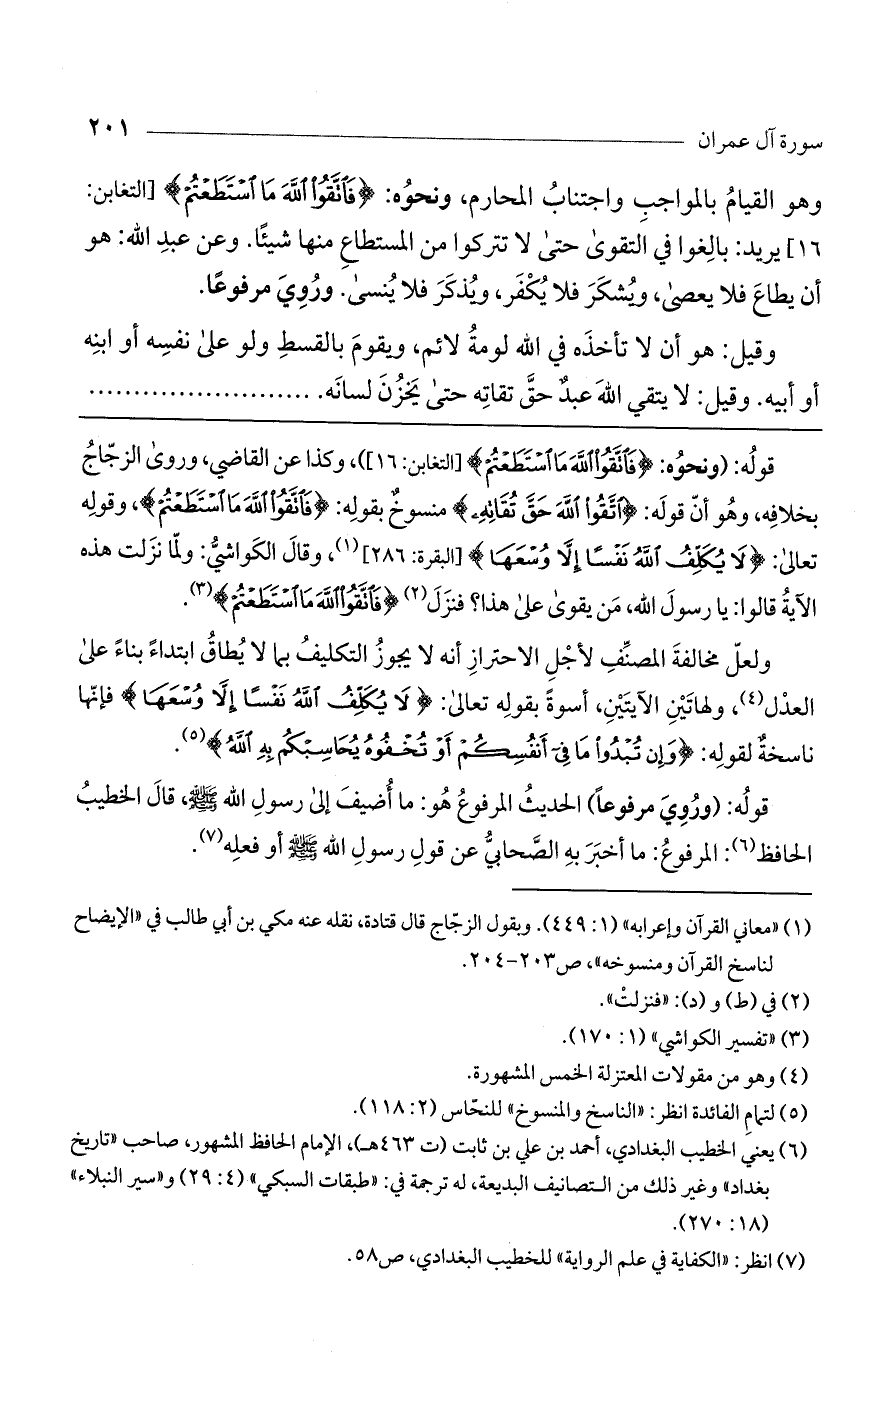 سورة آل عمران ٢٠١
وهو القيامُ بالمواجبِ واجتنابُ المحارم، ونحوُه: ﴿فَٱتَّقُوا۟ ٱللَّهَ مَا ٱسْتَطَعْتُمْ﴾ [التغابن:
١٦] يريد: بالِغوا في التقوىٰ حتىٰ لا تتركوا من المستطاعِ منها شيئًا. وعن عبدِ الله: هو
أن يطاعَ فلا يعصىٰ، ويُشكَرَ فلا يُكْفَر، ويُذكَرَ فلا يُنسىٰ. ورُوِيَ مرفوعًا.
وقيل: هو أن لا تأخذَه في الله لومةُ لائم، ويقومَ بالقسطِ ولو علىٰ نفسِه أو ابنِه
أو أبيه. وقيل: لا يتقي اللهَ عبدٌ حقَّ تقاتِه حتىٰ يَخْزُنَ لسانَه. .........................
قولُه: (ونحوُه: ﴿فَٱتَّقُوا۟ ٱللَّهَ مَا ٱسْتَطَعْتُمْ﴾ [التغابن: ١٦])، وكذا عن القاضي، وروىٰ الزجّاجُ
بخلافِه، وهُو أنّ قولَه: ﴿ٱتَّقُوا۟ ٱللَّهَ حَقَّ تُقَاتِهِۦ﴾ منسوخٌ بقولِه: ﴿فَٱتَّقُوا۟ ٱللَّهَ مَا ٱسْتَطَعْتُمْ﴾، وقولِه
تعالىٰ: ﴿لَا يُكَلِّفُ ٱللَّهُ نَفْسًا إِلَّا وُسْعَهَا﴾ [البقرة: ٢٨٦](١)، وقالَ الكَواشيُّ: ولمّا نزَلت هذه
الآيةُ قالوا: يا رسولَ الله، مَن يقوىٰ علىٰ هذا؟ فنزَلَ(٢) ﴿فَٱتَّقُوا۟ ٱللَّهَ مَا ٱسْتَطَعْتُمْ﴾(٣).
ولعلّ مخالفةَ المصنِّفِ لأجْلِ الاحترازِ أنه لا يجوزُ التكليفُ بما لا يُطاقُ ابتداءً بناءً علىٰ
العدْل(٤)، ولهاتَيْنِ الآيتَيْنِ، أسوةً بقولِه تعالىٰ: ﴿لَا يُكَلِّفُ ٱللَّهُ نَفْسًا إِلَّا وُسْعَهَا﴾ فإنّها
ناسخةٌ لقولِه: ﴿وَإِن تُبْدُوا۟ مَا فِىٓ أَنفُسِكُمْ أَوْ تُخْفُوهُ يُحَاسِبْكُم بِهِ ٱللَّهُ﴾(٥).
قولُه: (ورُوِيَ مرفوعاً) الحديثُ المرفوعُ هُو: ما أُضيفَ إلىٰ رسولِ الله ﷺ، قالَ الخطيبُ
الحافظ(٦): المرفوعُ: ما أخبَرَ بهِ الصَّحابيُّ عن قولِ رسولِ الله ﷺ أو فعلِه(٧).
(١) «معاني القرآن وإعرابه» (١: ٤٤٩). وبقول الزجّاج قال قتادة، نقله عنه مكي بن أبي طالب في «الإيضاح
لناسخ القرآن ومنسوخه»، ص٢٠٣-٢٠٤.
(٢) في (ط) و (د): «فنزلتْ».
(٣) «تفسير الكواشي» (١: ١٧٠).
(٤) وهو من مقولات المعتزلة الخمس المشهورة.
(٥) لتمامِ الفائدة انظر: «الناسخ والمنسوخ» للنحّاس (٢: ١١٨).
(٦) يعني الخطيب البغدادي، أحمد بن علي بن ثابت (ت ٤٦٣هـ)، الإمام الحافظ المشهور، صاحب «تاريخ
بغداد» وغير ذلك من التصانيف البديعة، له ترجمة في: «طبقات السبكي» (٤: ٢٩) و«سير النبلاء»
(١٨: ٢٧٠).
(٧) انظر: «الكفاية في علم الرواية» للخطيب البغدادي، ص٥٨.